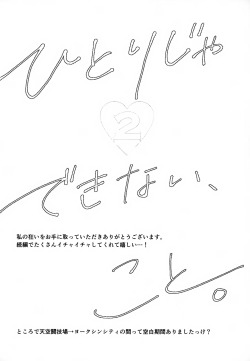 ひとりじゃ
2
できない、
こと。
私の狂いをお手に取っていただきありがとうございます。
続編でたくさんイチャイチャしてくれて嬉しいー！
ところで天空闘技場→ヨークシンシティの間って空白期間ありましたっけ？